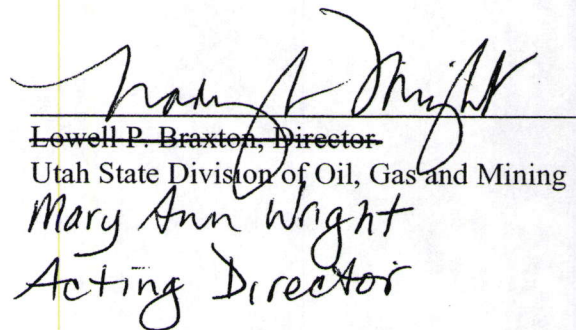 Mary A Wright
Lowell P. Braxton, Director
Utah State Division of Oil, Gas and Mining
Mary Ann Wright
Acting Director